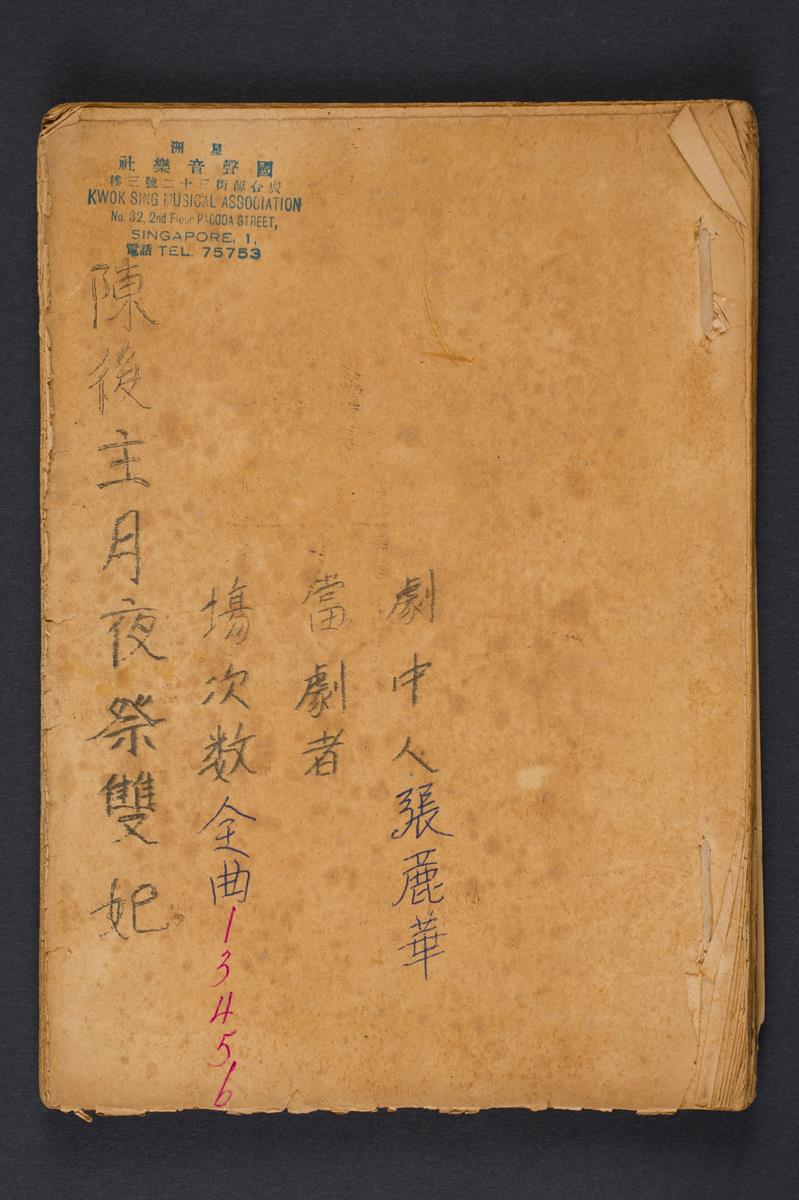 星洲
國聲音樂社
廣合源街三十二號三樓
KWOK SING MUSICAL ASSOCIATION
No. 32, 2nd Floor PAGODA STREET,
SINGAPORE, 1.
電話 TEL. 75753
劇中人張麗華
當劇者
塲次数全曲13456
陳後主月夜祭雙妃